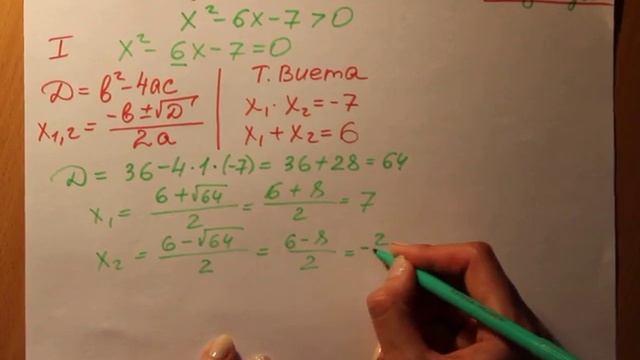 x² - 6x - 7 > 0
I x² - 6x - 7 = 0
D = в² - 4ac
x₁,₂ = (-в ± √D) / 2a
Т. Виета
x₁ · x₂ = -7
x₁ + x₂ = 6
D = 36 - 4 · 1 · (-7) = 36 + 28 = 64
x₁ = (6 + √64) / 2 = (6 + 8) / 2 = 7
x₂ = (6 - √64) / 2 = (6 - 8) / 2 = - 2